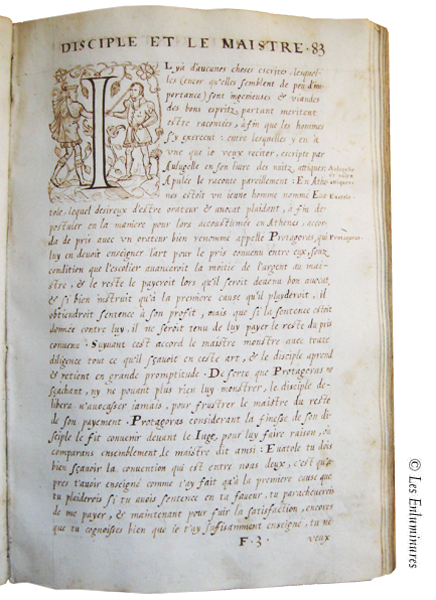 DISCIPLE ET LE MAISTRE. 83
IL y a d'aucunes choses escrites, lesquel-
les (encor qu'elles semblent de peu d'im-
portance) sont ingenieuses & viandes
des bons espritz, partant meritent
d'estre racontées, à fin que les hommes
s'y exercent : entre lesquelles y en a
vne que ie veux reciter, escripte par
Aulugelle en son liure des nuitz attiques:
Apulee le raconte pareillement : En Athe-
nes estoit vn ieune homme nommé Eua-
tole, lequel desireux d'estre orateur & auocat plaidant, à fin de
postuler en la maniere pour lors accoustumée en Athenes, accor-
da de pris auec vn orateur bien renommé appellé Protagoras, qui
luy en deuoit enseigner l'art pour le pris conuenu entre eux, souz
condition que l'escolier auanceroit la moitié de l'argent au mai-
stre, & le reste le payeroit lors qu'il seroit deuenu bon auocat,
& si bien instruit qu'à la premiere cause qu'il plyderoit, il
obtiendroit sentence à son profit, mais que si la sentence estoit
donnée contre luy, il ne seroit tenu de luy payer le reste du pris
conuenu : Suyuant cest accord le maistre monstre auec toute
diligence tout ce qu'il sçauoit en ceste art, & le disciple aprend
& retient en grande promptitude. De sorte que Protagoras ne
sçachant, ny ne pouant plus rien luy monstrer, le disciple de-
libera n'aduocasser iamais, pour frustrer le maistre du reste
de son payement. Protagoras considerant la finesse de son di-
sciple le fit conuenir deuant le Iuge, pour luy faire raison, où
comparans ensemblement le maistre dit ainsi : Euatole tu dois
bien sçauoir la conuention qui est entre nous deux, c'est qu'a-
pres t'auoir enseigné comme i'ay fait qu'à la premiere cause que
tu plaiderois si tu auois sentence en ta faueur, tu paracheuerois
de me payer, & maintenant pour fair la satisfaction, encores
que tu cognoisses bien que ie t'ay sufisamment enseigné, tu ne
F. 3. veux
Protagoras.
© Les Enluminures